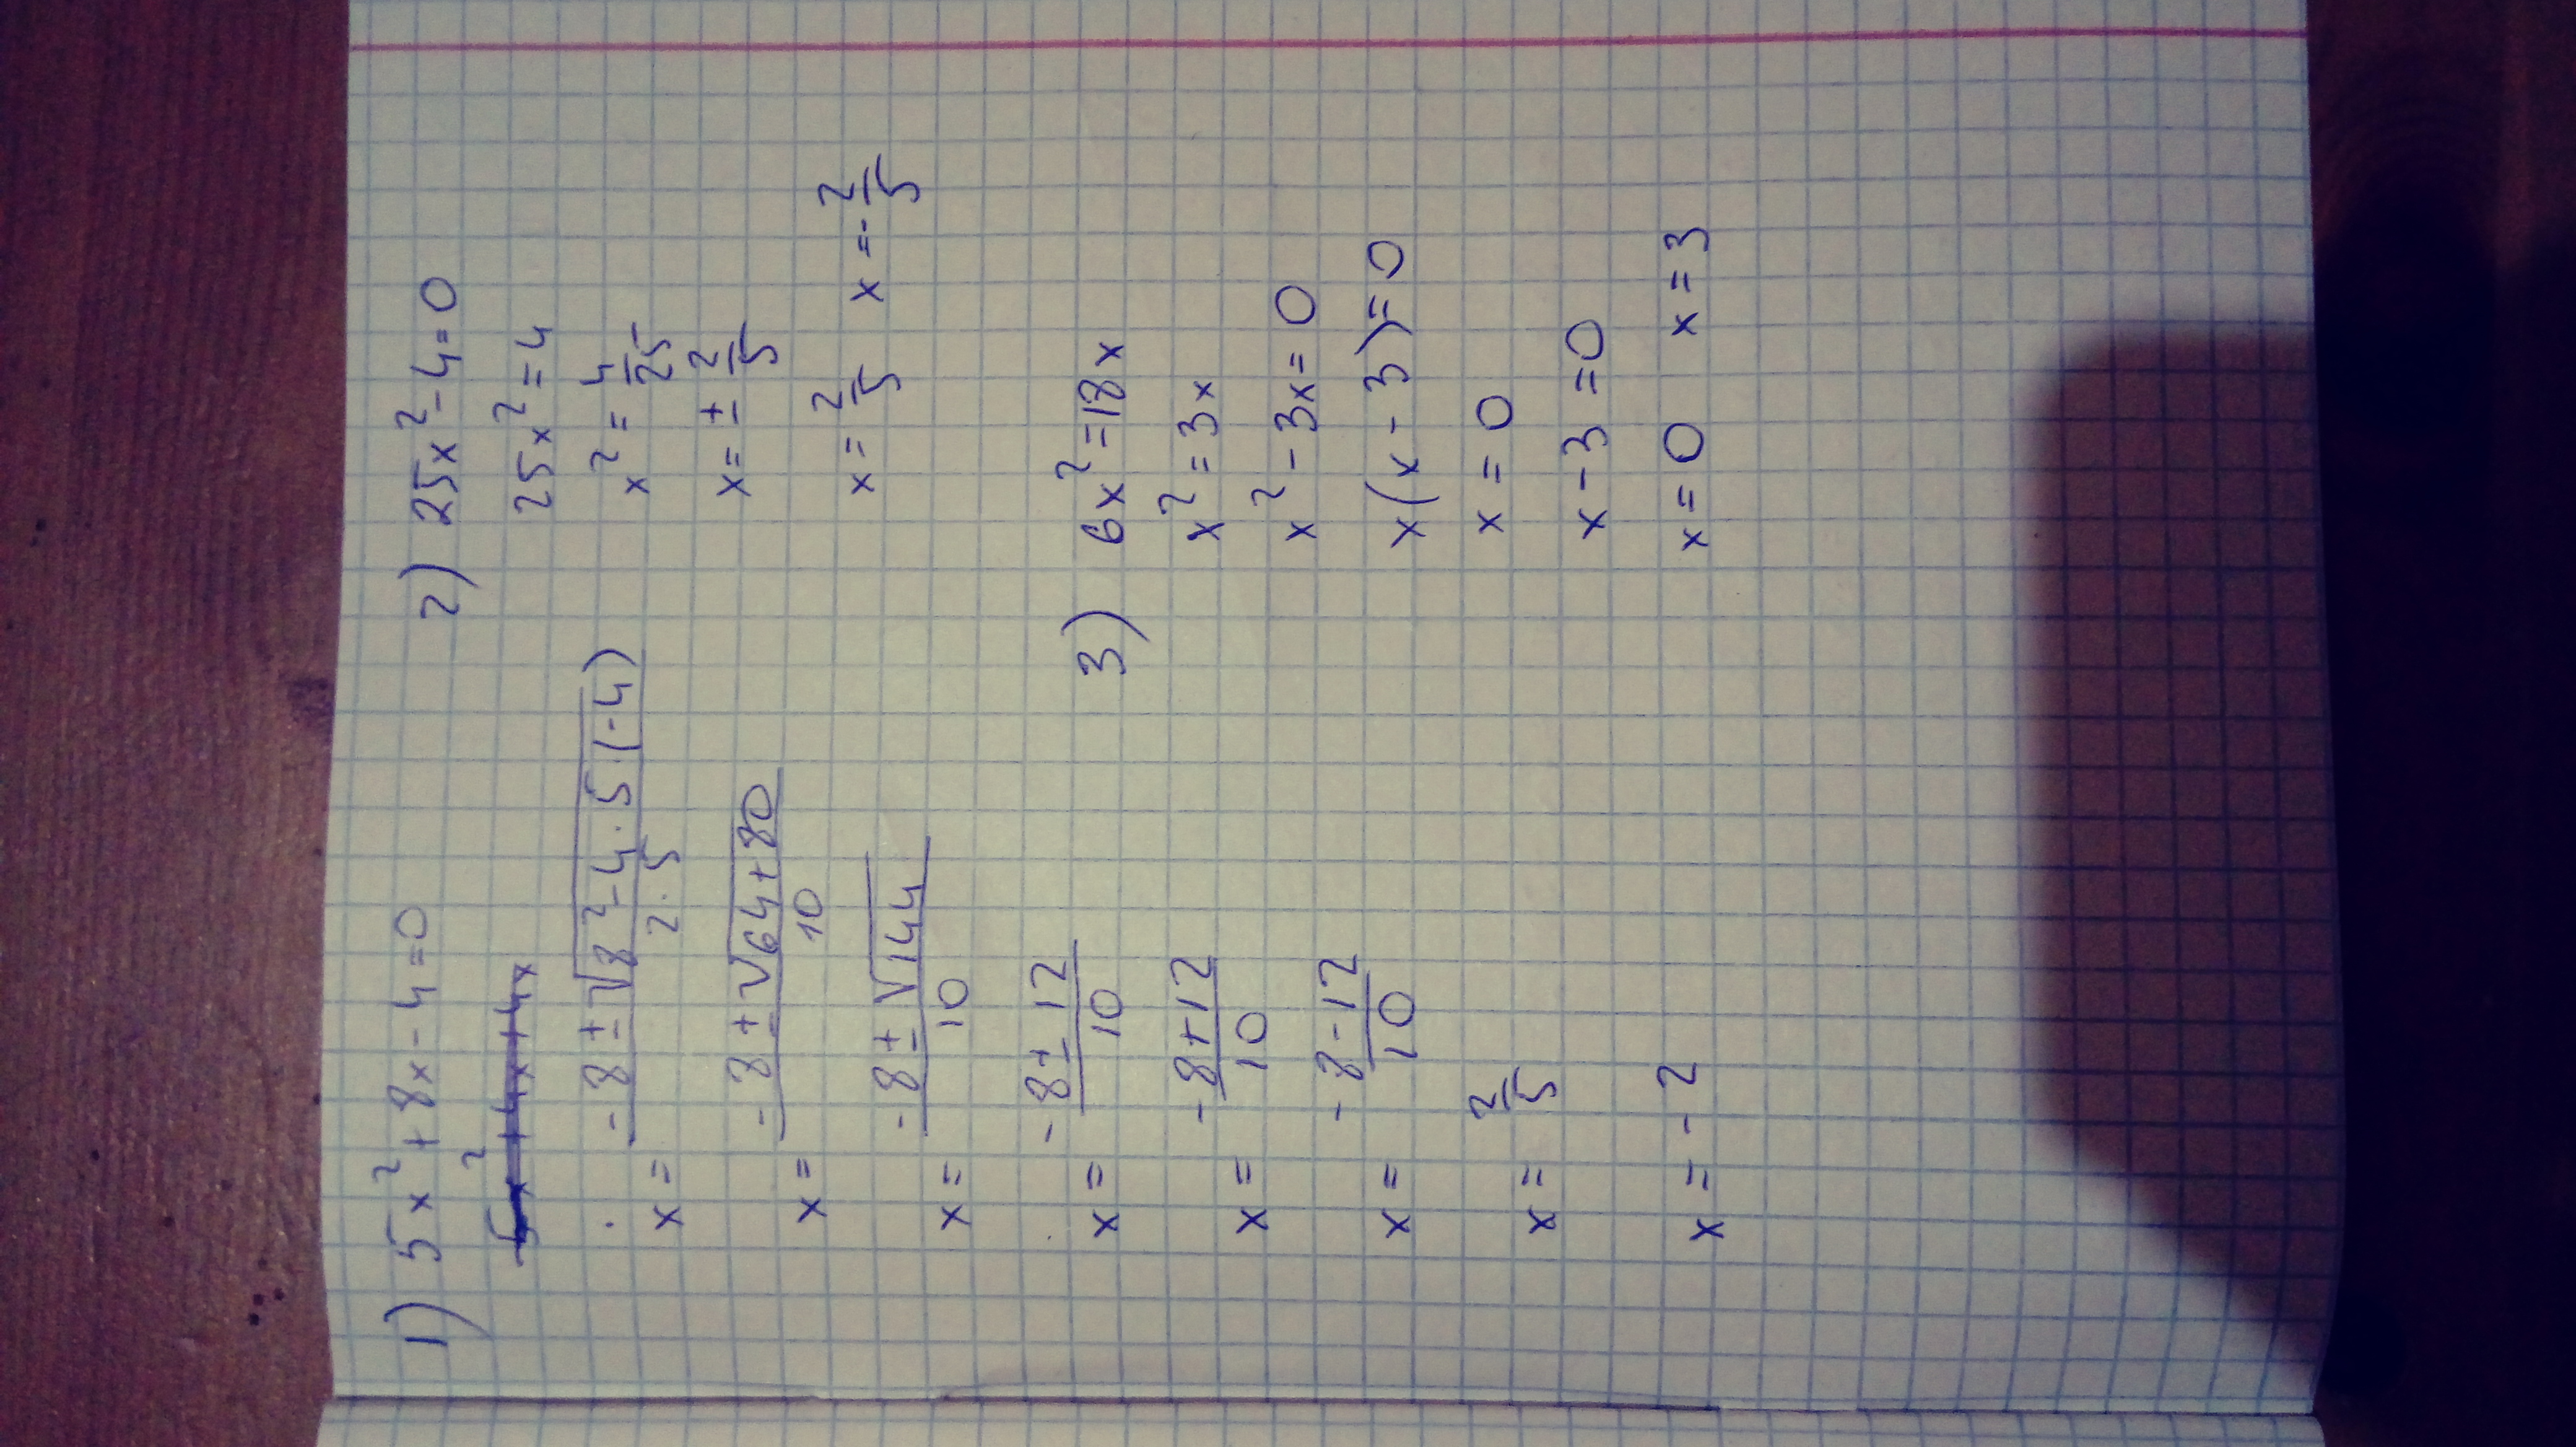 1) 5x² + 8x - 4 = 0
x = -8 ± √8² - 4 · 5 (-4) / 2 · 5
x = -8 ± √64 + 80 / 10
x = -8 ± √144 / 10
x = -8 ± 12 / 10
x = -8 + 12 / 10
x = -8 - 12 / 10
x = 2/5
x = -2
2) 25x² - 4 = 0
25x² = 4
x² = 4/25
x = ± 2/5
x = 2/5 x = -2/5
3) 6x² = 18x
x² = 3x
x² - 3x = 0
x(x - 3) = 0
x = 0
x - 3 = 0
x = 0 x = 3